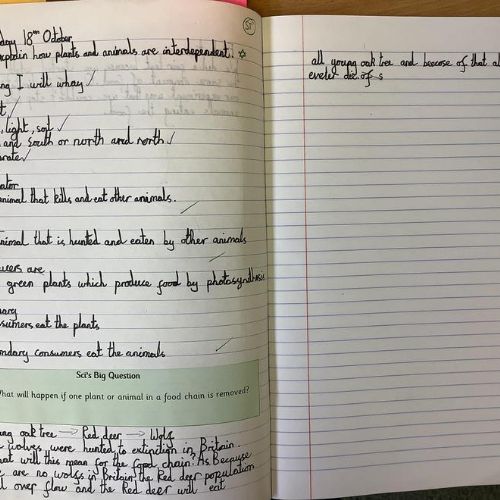 day 18th October
explain how plants and animals are interdependent.
SI
ng I will whay
t
, light, soil
and south or north and north
arate
ator
nimal that kills and eat other animals.
nimal that is hunted and eaten by other animals
ucers are
green plants which produce food by photosynthesis
ary
sumers eat the plants
ondary consumers eat the animals
Sci's Big Question
What will happen if one plant or animal in a food chain is removed?
ung oak tree → Red deer → Wolf
wolves were hunted to extinction in Britain.
hat will this mean for the food chain? As Because
e are no wolfs in Britain the Red deer population
l over flow and the Red deer will eat
all young oak tree and becose of that al
evele die of s